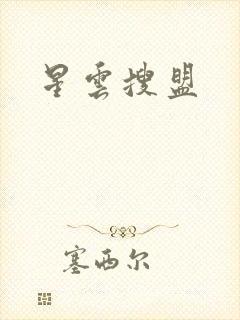 星雲搜盟
塞西尔